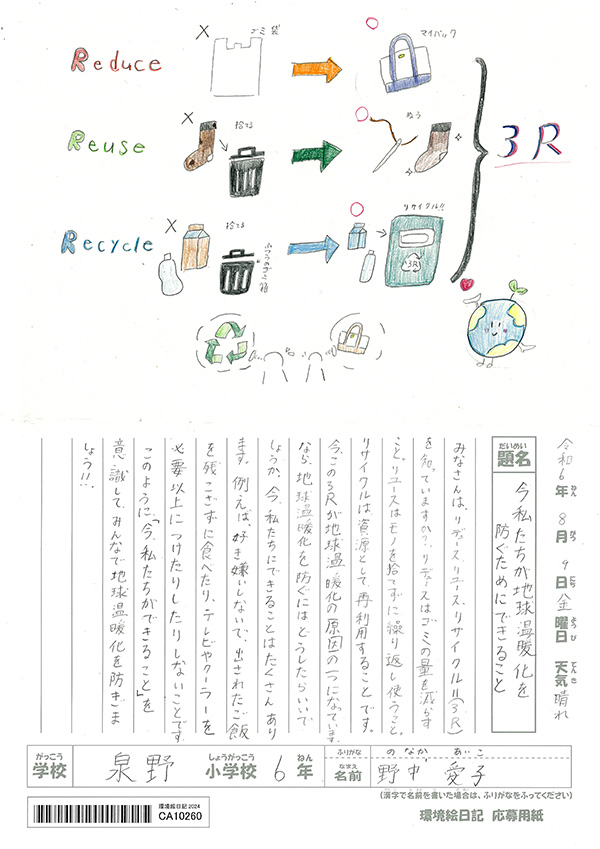 Reduce
×
ゴミ袋
○
マイバック
Reuse
×
捨てる
○
ぬう
3R
Recycle
×
捨てる
ふつうのゴミ箱
○
リサイクル!!
3R
令和6年 8月 9日 金曜日 天気 晴れ
ねん がつ にち ようび てんき
だいめい
題名
今私たちが地球温暖化を
防ぐためにできること
みなさんは、リデュース、リユース、リサイクル!!(3R)
を知っていますか?。リデュースはゴミの量を減らす
こと。リユースはモノを捨てずに繰り返し使うこと。
リサイクルは資源として再利用することです。
今、この3Rが地球温暖化の原因の一つになっています。
なら、地球温暖化を防ぐにはどうしたらいいで
しょうか。今、私たちにできることはたくさんあり
ます。例えば、好き嫌いしないで、出されたご飯
を残こさずに食べたり、テレビやクーラーを
必要以上につけたりしたりしないことです。
このように「今、私たちができること」を
意識して、みんなで地球温暖化を防ぎま
しょう!!.
がっこう しょうがっこう ねん
学校 泉野 小学校 6年
ふりがな のなか あいこ
なまえ
名前 野中 愛子
(漢字で名前を書いた場合は、ふりがなをふってください)
環境絵日記 2024
CA10260
環境絵日記 応募用紙